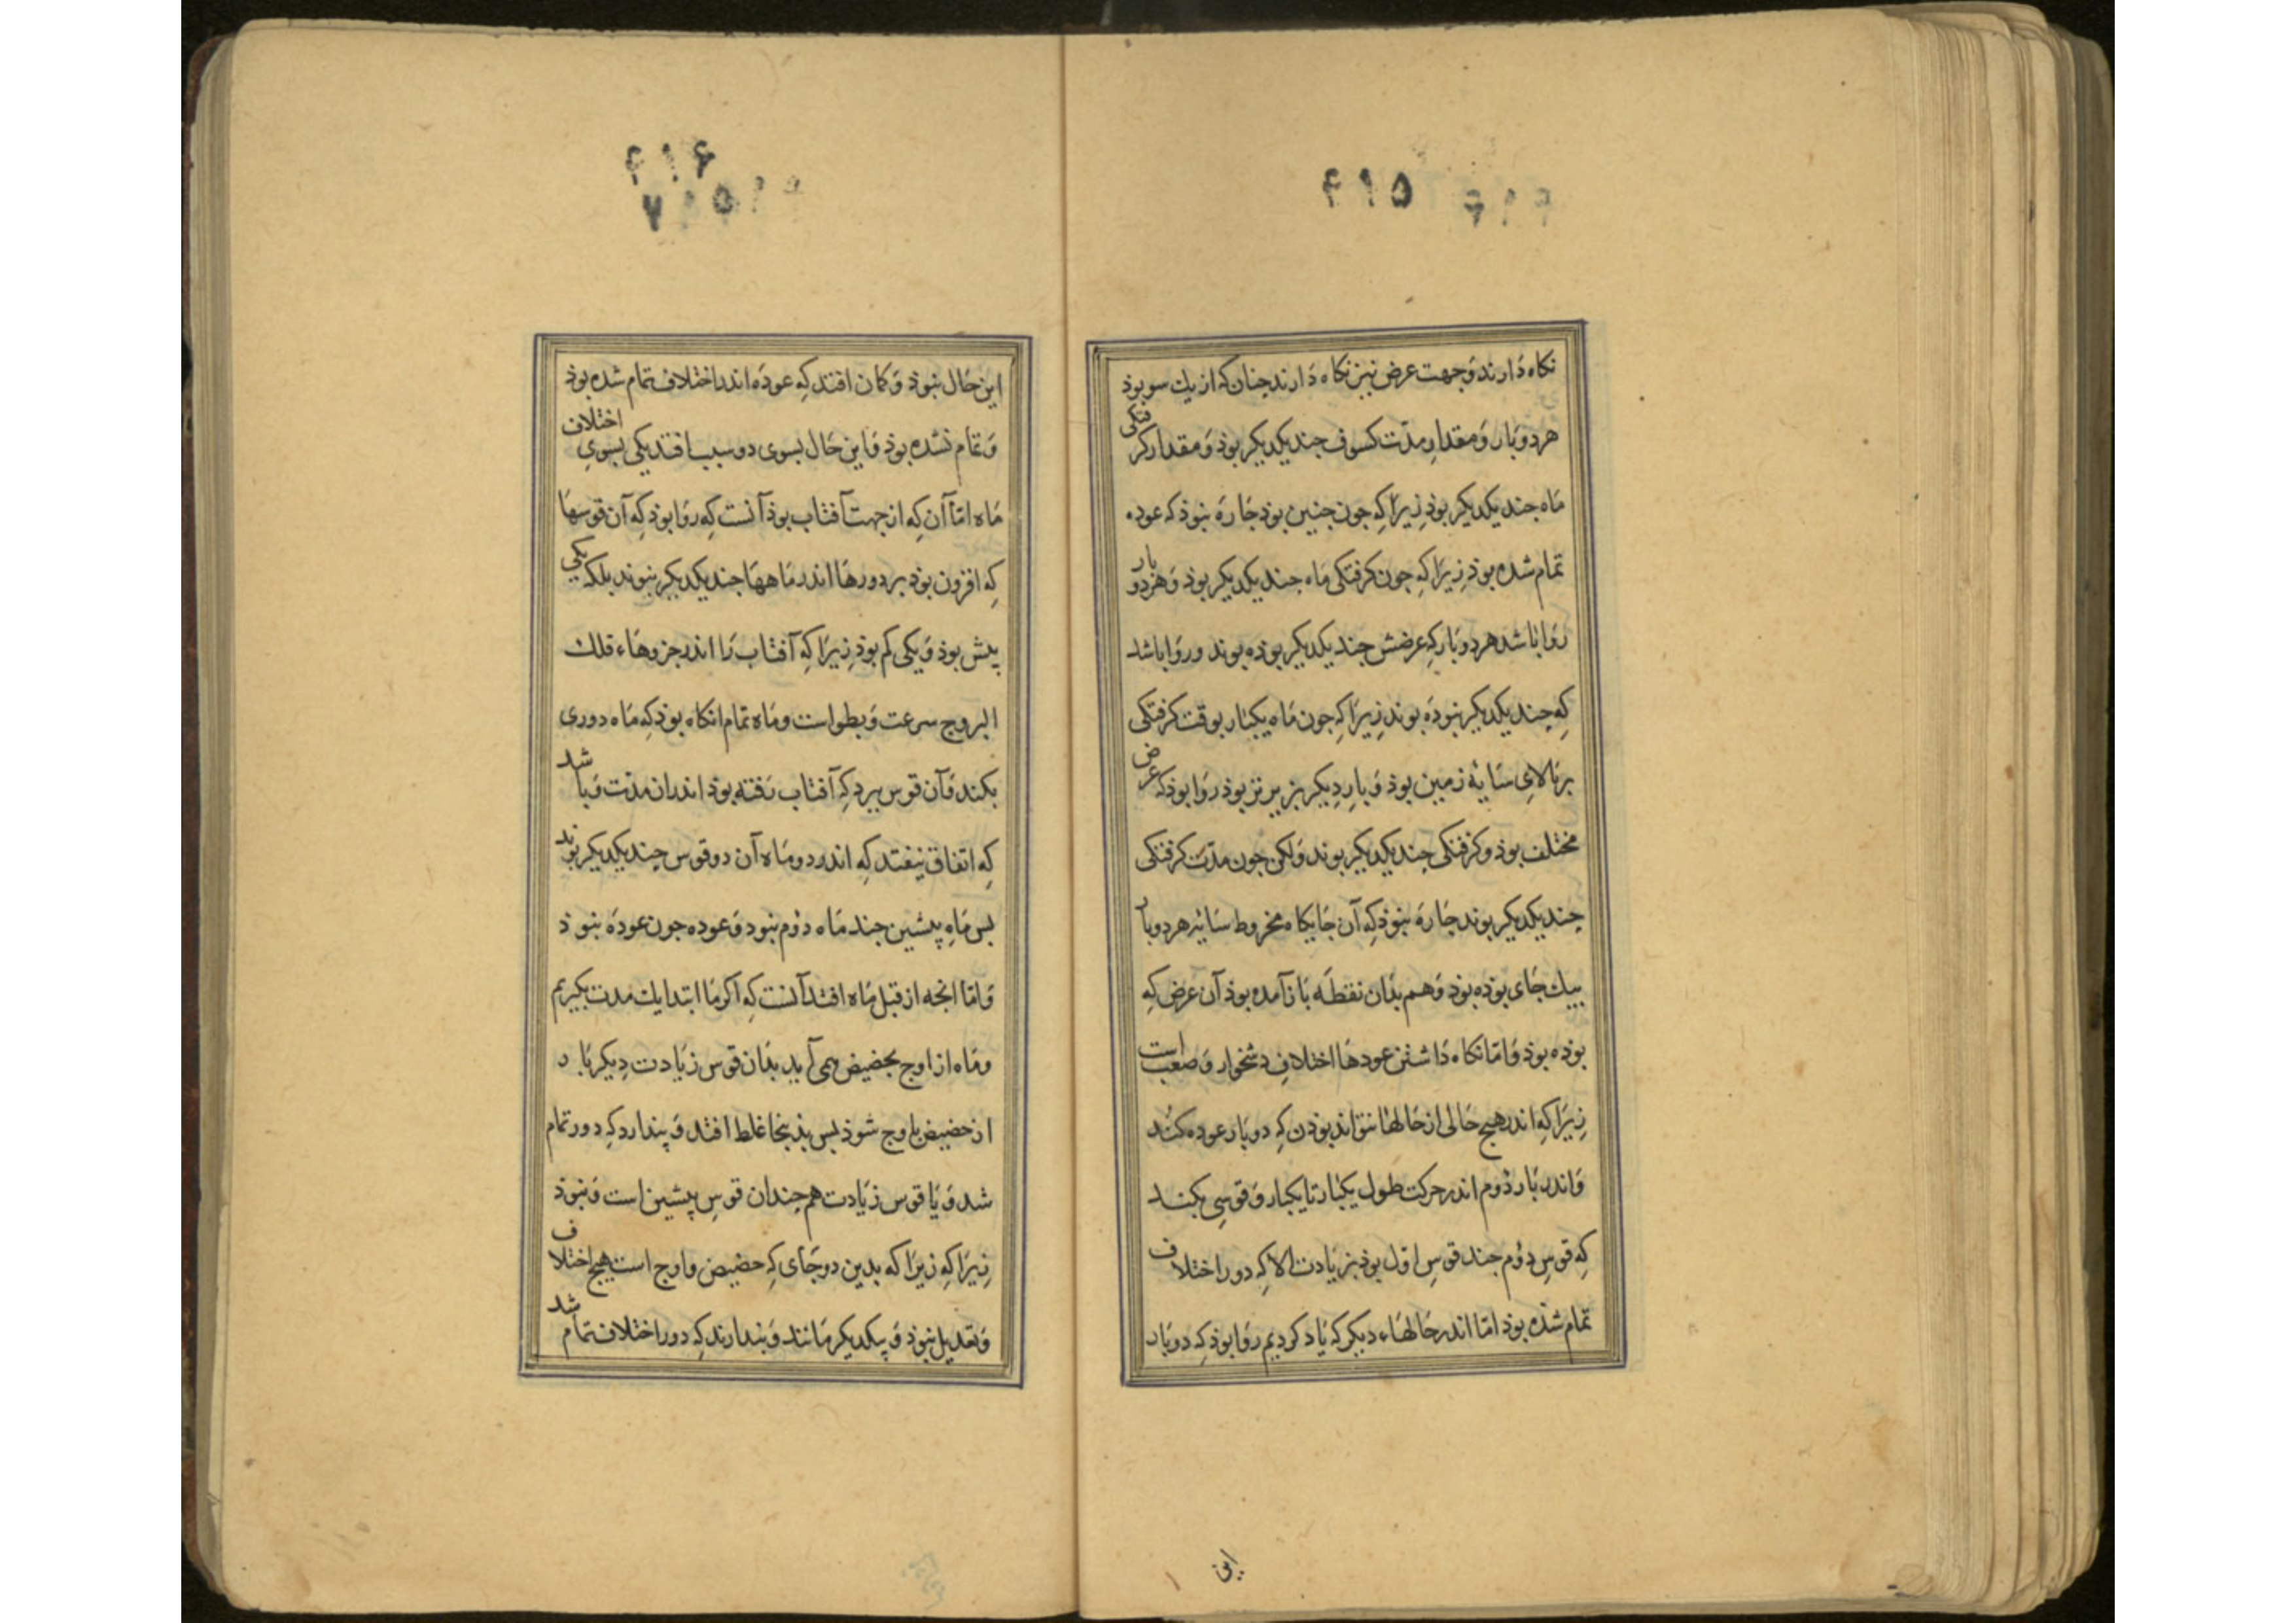 ۴۱۵
نکاه دَارند وَجهت عرض نیز نکاه دَارند چنان که از یك سو بوذ
هر دو بار وَ مقدارِ مدّت کسوف جند یکدیکر بوذ وَ مقدار کرفتکی
مَاه جند یکدیکر بوذ زِیرَا کِه جون جنین بوذ جَارَه نبوذ که عوده
تمام شده بوذ زِیرَا کِه جون کرفتکی مَاه جند یکدیکر بوذ وَ هر دو بار
روَا بَاشد هر دو بَار کِه عرضش جند یکدیکر بوذه بوند و روَا باشد
کِه جند یکدیکر نبوذَه بوند زِیرَا کِه جون مَاه یکبَار بوقت کرفتکی
بر بَالایِ سَایهٔ زمین بوذ وَ بارِ دِیکر بزیر تر بوذ روَا بوذ که عرض
مختلف بوذ و کرفتکی جند یکدیکر بوند وَلکن جون مدّت کرفتکی
جند یکدیکر بوند جَارَه نبوذ کِه آن جَایکاه مخروط سَایه هر دو بار
بیك جَای بوذه بوذ وَ هم بذان نقطَه بَاز آمده بوذ آن عرض کِه
بوذه بوذ وَ امّا نکاه دَاشتن عودهَا اختلافِ دشخوار وَ صعب است
زِیرَا کِه اندر هیج حَالی از حَالهَا نتوَاند بوذن کِه دو بَار عوده کنند
وَ اندر بَار دُوم اندر حرکت طول یکبَار تا یکبار وَ قوسِی بکنـد
کِه قوسِ دوُم جند قوسِ اوّل بوذ بزیَادت الّا کِه دور اختلاف
تمام شدَه بوذ امّا اندر حَالهَاء دیکر که یَاد کردیم روَا بوذ کِه دو بَار
این
۴۱۶
این حَال نبوذ وَ کمان افتد کِه عودَه اندر اختلاف تمام شده بوذ
وَ تمام نشده بوذ وَ این حَال بسوی دو سبب افتد یکی بسویِ اختلاف
مَاه امّا آن کِه از جهت آفتاب بوذ آنست کِه روَا بوذ کِه آن قوسهَا
کِه افزون بوذ بر دورهَا اندر مَاههَا جند یکدیکر نبوند بلکه یکی
پیش بوذ وَ یکی کم بوذ زِیرَا کِه آفتاب رَا اندر جزوهَاء فلك
البروج سرعت وَ بطو است و مَاه تمام انکاه بوذ کِه مَاه دوری
بکند وَ آن قوس ببرد کِه آفتاب رَفته بوذ اندران مدّت وَ باشد
کِه اتفاق نیفتد کِه اندر دو مَاه آن دو قوس جند یکدیکر بوند
بس مَاهِ پیشین جند مَاه دوُم نبود وَ عوده جون عودَه نبوذ
وَ امّا انجه از قبل مَاه افتد آنست کِه اکر مَا ابتدا یك مدت بکیریم
و مَاه از اوج بحضیض همی آید بذان قوس زیَادت دِیکر بَار
از حضیض باوج شوذ بس بذینجَا غلط افتد وَ پندارد کِه دور تمام
شد وَ یَا قوس زیَادت هم جندان قوسِ پیشین است وَ نبوذ
زِیرَا کِه زیرَا که بدین دو جَای کِه حضیض و اوج است هیج اختلاف
وَ تعدیل نبوذ وَ بیکدیکر مَانند وَ بندارند کِه دور اختلاف تمام شد